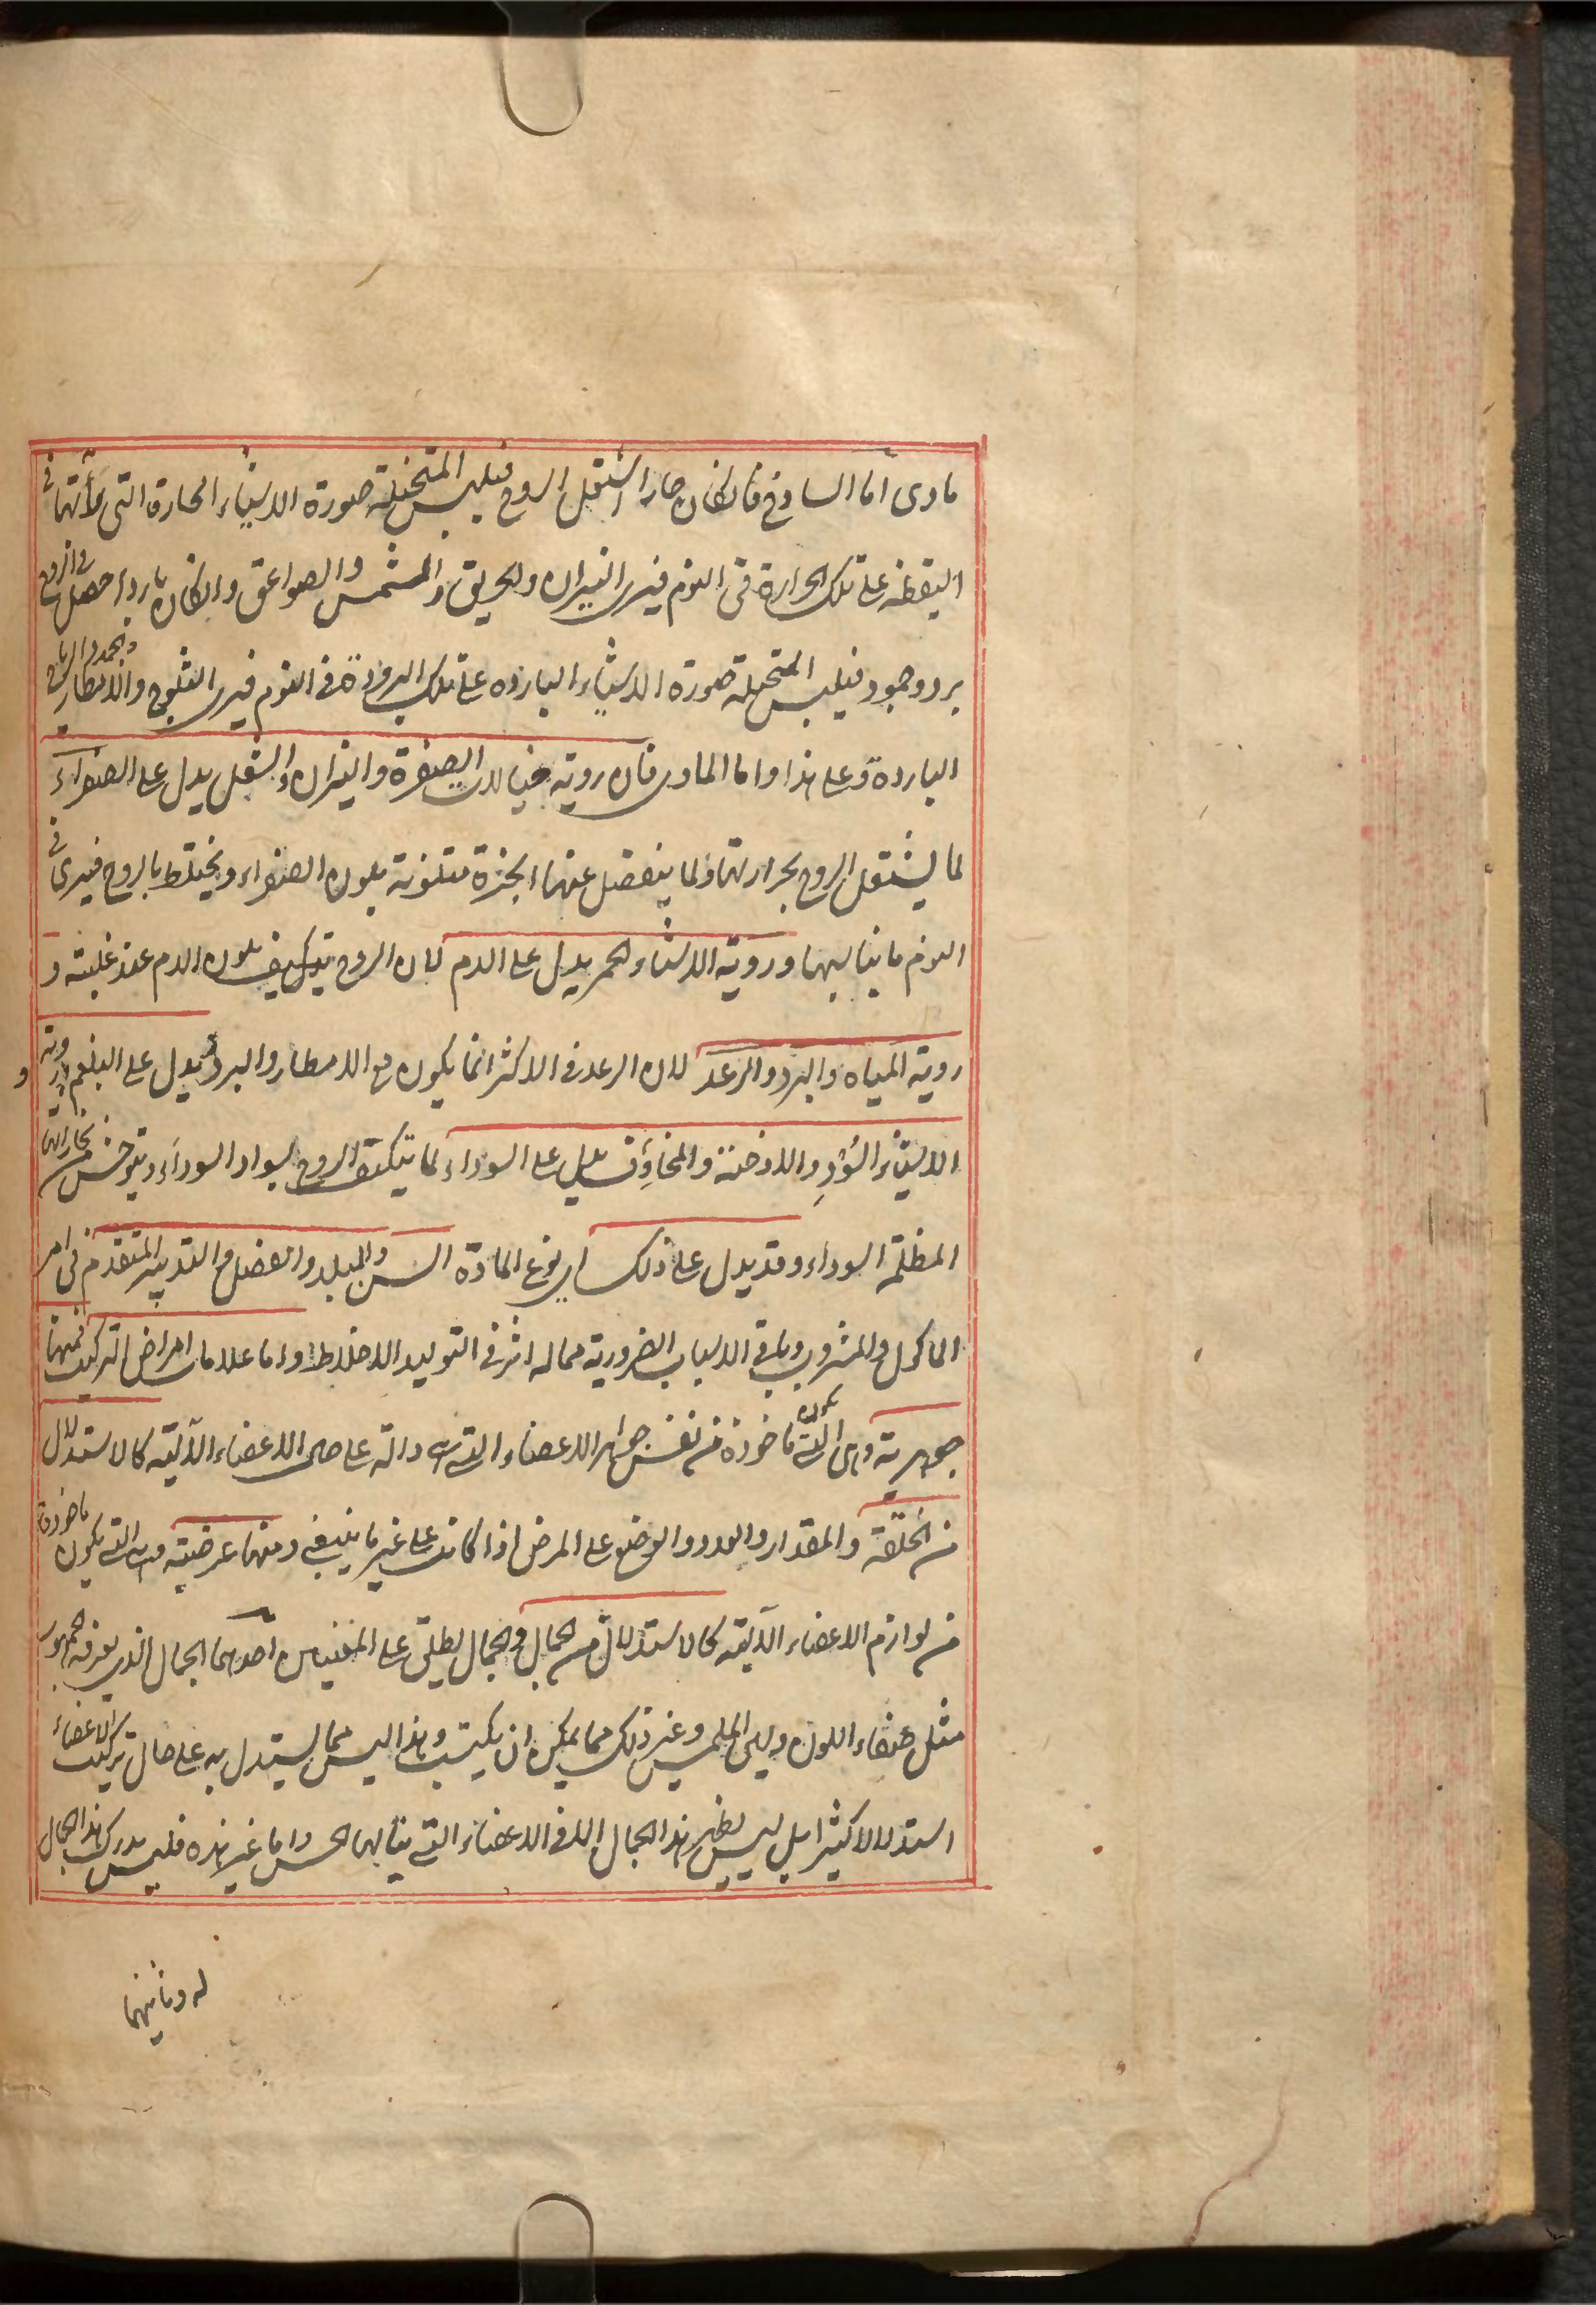 مادى اما الساذج فان كان حارا اشتعل الروح فيلبس المتخيلة صورة الاشياء الحارة التى رأتها فى
اليقظة على تلك الحرارة فى النوم فيرى النيران والحريق والشمس والصواعق وان كان باردا حصل فى الروح
برد وجمود فيلبس المتخيلة صورة الاشياء الباردة على تلك البرودة فى النوم فيرى الثلوج والامطار والجمد والرياح
الباردة وعلى هذا واما المادى فان روية خيالات الصفرة والنيران والشعل يدل على الصفراء
لما يشتعل الروح بحرارتها ولما ينفصل عنها ابخرة متلونة بلون الصفراء ويختلط بالروح فيرى فى
النوم ما يناسبها وروية الاشياء الحمر يدل على الدم لان الروح يتكيف بلون الدم عند غلبته و
روية المياه والبرد والرعد لان الرعد فى الاكثر انما يكون مع الامطار والبرد يدل على البلغم وروية
الاشياء السُّودِ والادخنة والمخاوف يدل على السوداء لما يتكيف الروح بسواد السوداء ويتوحش من بخاراتها
المظلمة السوداء وقد يدل على ذلك اى نوع المادة السن والبلد والفصل والتدبير المتقدم فى امر
الماكول والمشروب وباقى الاسباب الضرورية مما له اثر فى التوليد الاخلاط واما علامات امراض التركيب فمنها
جوهرية وهى التى يكون ماخوذة من نفس جواهر الاعضاء التى هى دالة على الاعضاء الآلية كالاستدلال
من الخلقة والمقدار والعدد والوضع على المرض اذا كانت على غير ما ينبغى ومنها عرضية وهى التى يكون ماخوذة
من لوازم الاعضاء الآلية كالاستدلال من الجمال والجمال يطلق على المعنيين احدهما الجمال الذى يعرفه الجمهور
مثل صفاء اللون ولين الملمس وغير ذلك مما يمكن ان يكتسب وهذا ليس مما يستدل به على حال تركيب الاعضاء
استدلالا كثيرا بل ليس يظهر هذا الجمال الا فى الاعضاء التى ينالها الحس واما غير هذه فليس يدرك هذا الجمال
له وثانيهما